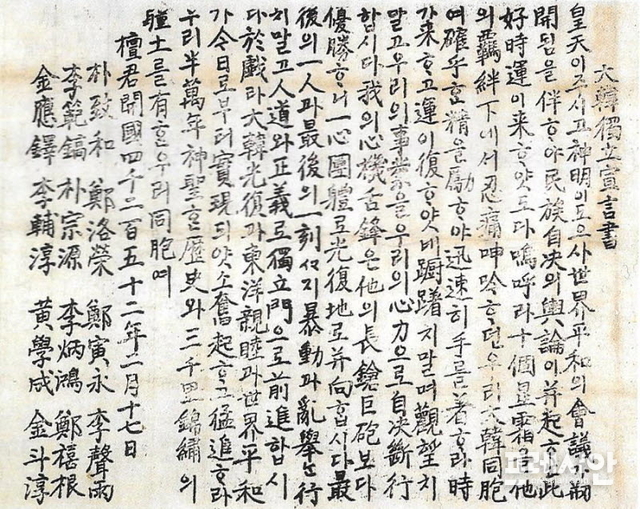 大韓獨立宣言書
皇天이주시고神明이도으사世界平和의會議가刱
開됨을伴ᄒᆞ야民族自决의輿論이幷起ᄒᆞ는此
好時運이来ᄒᆞ얏도다嗚呼라十個星霜을他
의羈絆下에서忍痛呻唫ᄒᆞ던우리大韓同胞
여確乎ᄒᆞᆫ精을勵ᄒᆞ야迅速히手를着ᄒᆞ라時
가来ᄒᆞ고運이復ᄒᆞ얏네躕躇치말며觀望치
말고우리의事業을우리의心力으로自决斷行
합시다我의心機舌鋒은他의長鎗巨砲보다
優勝ᄒᆞ니一心團體로光復地로并向합시다最
後의一人과最後의一刻ᄭᆞ지暴動과亂擧는行
치말고人道와正義로獨立門으로前進합시
다於戱라大韓光復과東洋親睦과世界平和
가今日로부터實現되얏소奮起ᄒᆞ고猛進ᄒᆞ라
우리半萬年神聖ᄒᆞᆫ歷史와三千里錦繡의
疆土를有ᄒᆞᆫ우리同胞여
檀君開國四千二百五十二年二月十七日
朴致和 鄭洛榮 鄭寅永 李聲雨
李範鎬 朴宗源 李炳鴻 鄭禧根
金應鐸 李輔淳 黃學成 金斗淳
프레시안